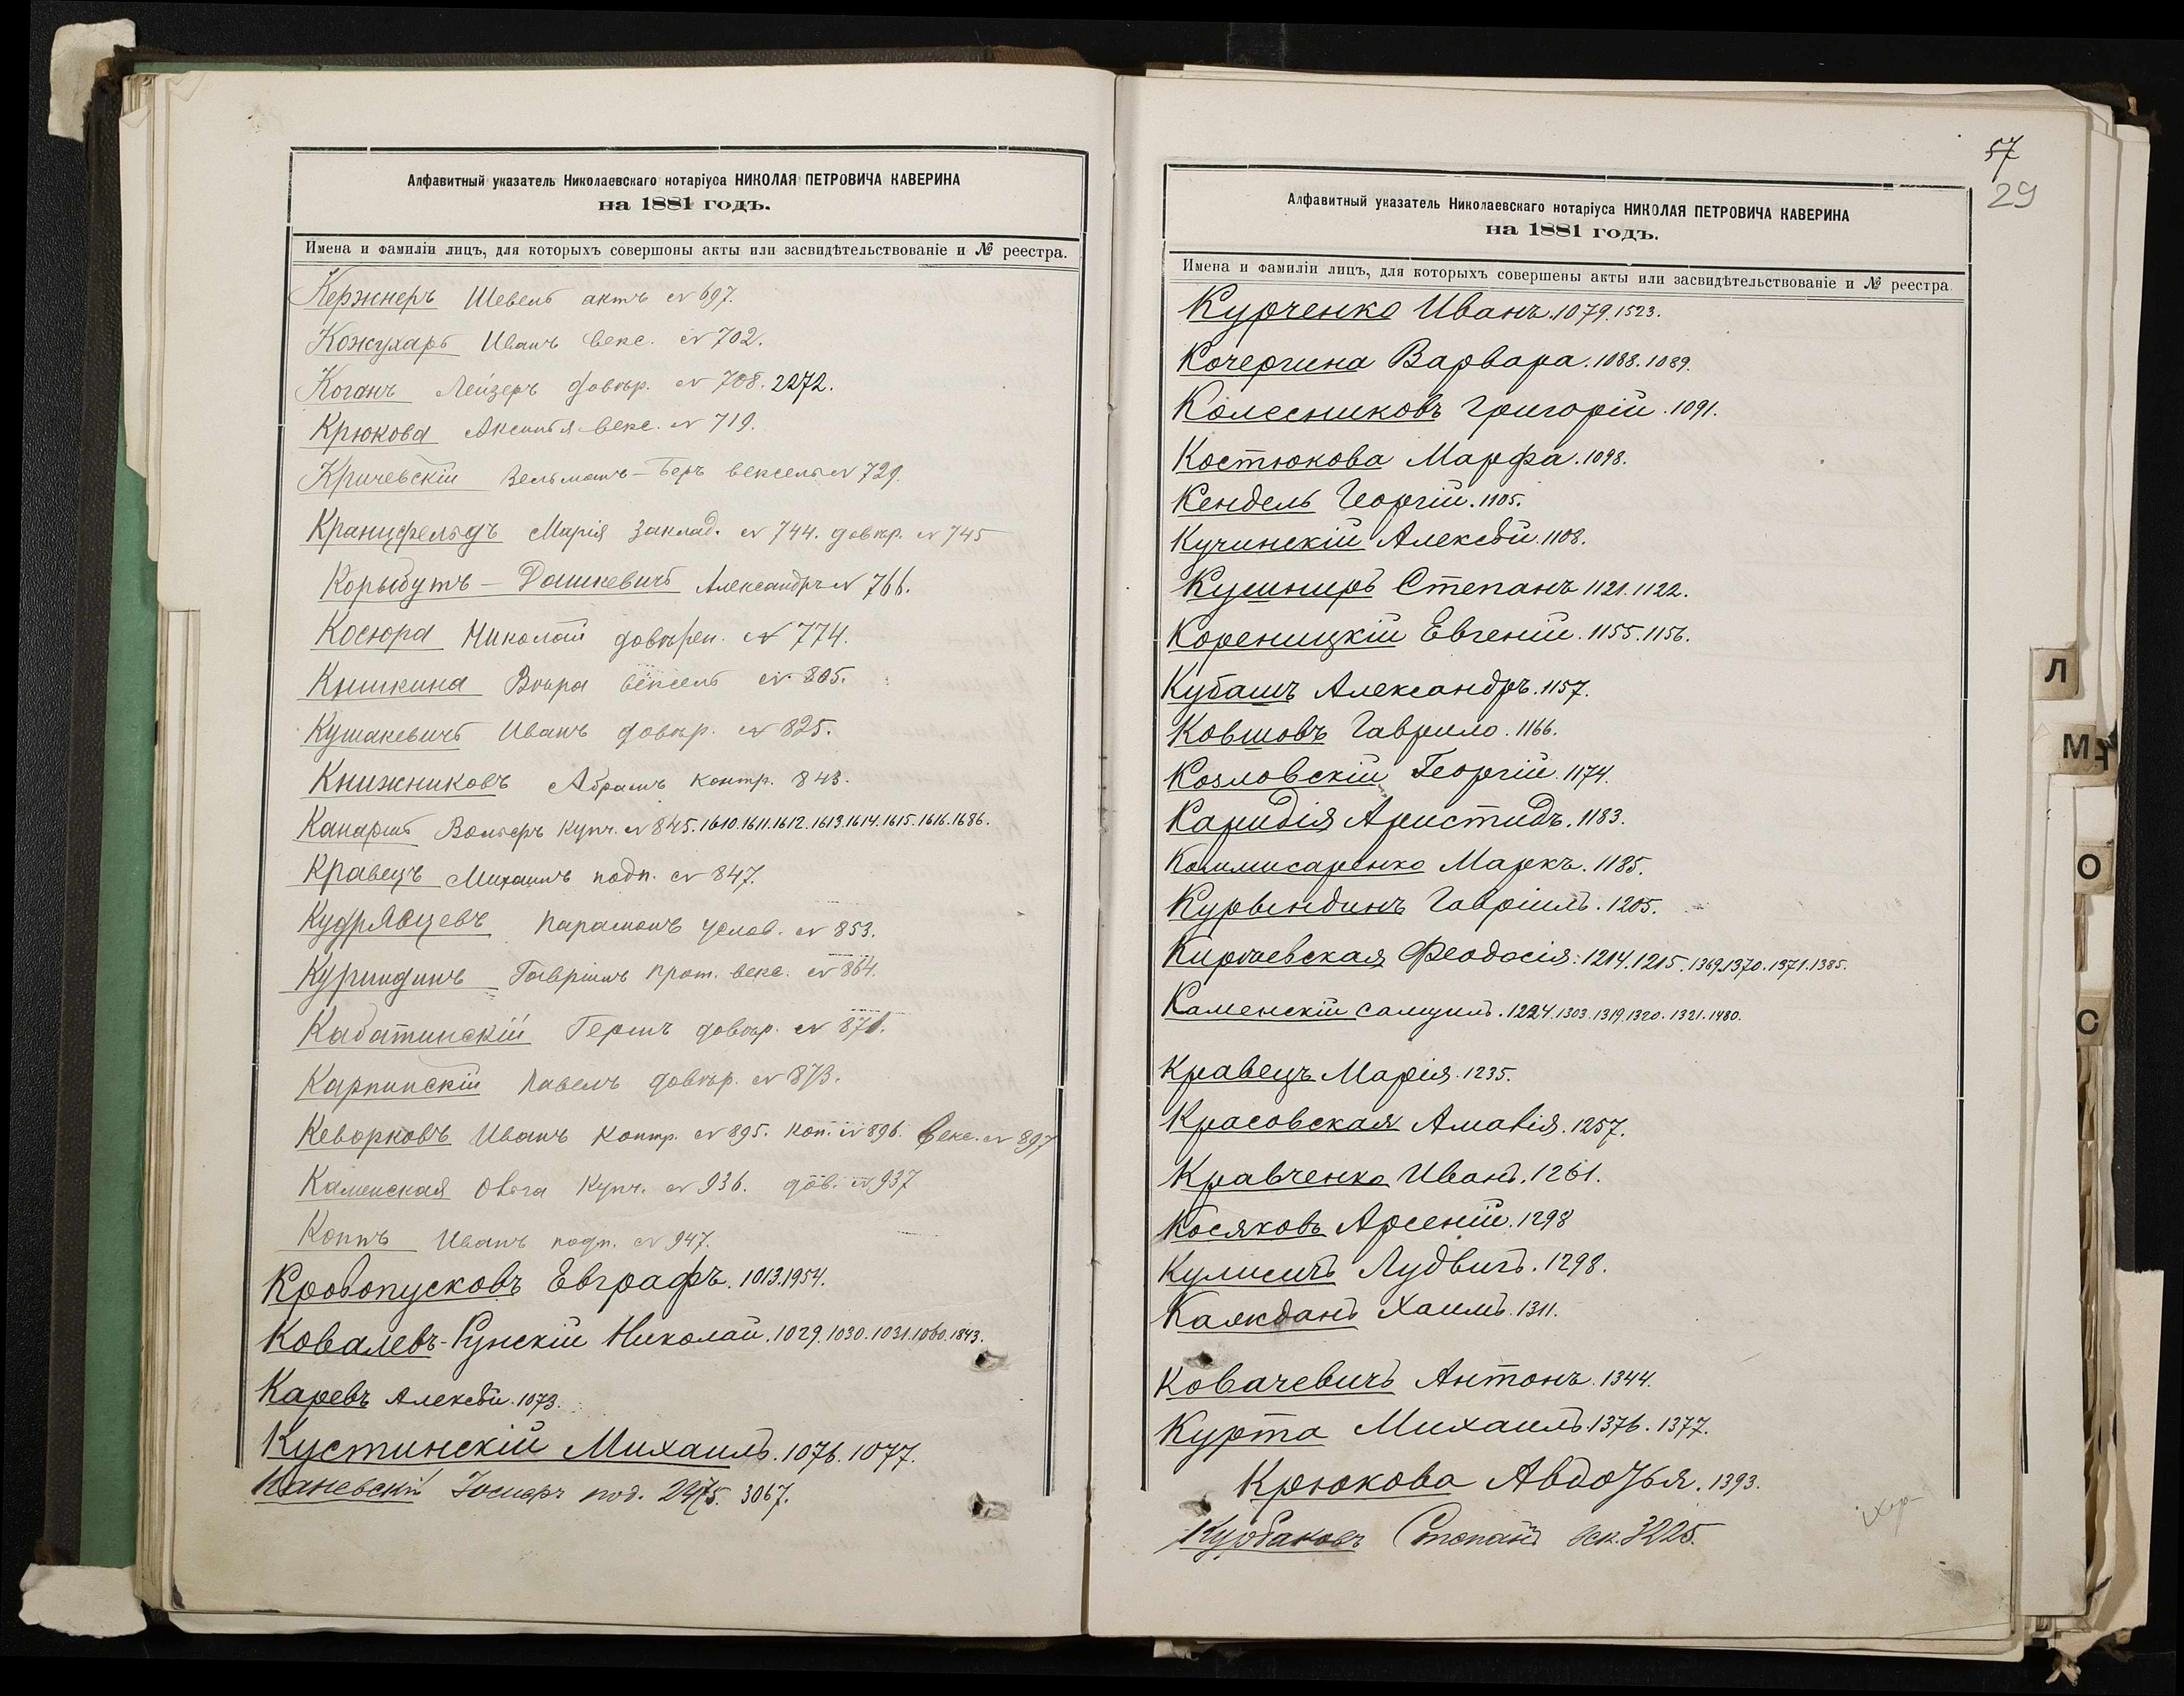 Алфавитный указатель Николаевскаго нотаріуса НИКОЛАЯ ПЕТРОВИЧА КАВЕРИНА
на 1881 годъ.
Имена и фамиліи лицъ, для которыхъ совершоны акты или засвидѣтельствованіе и № реестра.
Кержнеръ Шевель актъ № 697.
Кожухарь Иванъ векс. № 702.
Коганъ Лейзеръ довѣр. № 708. 2272.
Крюкова Аксинья векс. № 719.
Кричевскій Зельманъ-Беръ вексель № 729.
Кранцфельдъ Марія заклад. № 744. довѣр. № 745
Корыбутъ-Дашкевичъ Александръ № 766.
Косюра Николай довѣрен. № 774.
Книшкина Вѣра вексель № 805.
Кушакевичъ Иванъ довѣр. № 825.
Книжниковъ Абрамъ контр. 843.
Канаршъ Вольфъ купч. № 845. 1610. 1611. 1612. 1613. 1614. 1615. 1616. 1686.
Кравецъ Михаилъ подп. № 847.
Кудрявцевъ Парамонъ услов. № 853.
Куриндинъ Гавріилъ прот. векс. № 864.
Кабатинскій Гершъ довѣр. № 871.
Карпинскій Павелъ довѣр. № 873.
Кеворковъ Иванъ контр. № 895. коп. № 896. векс. № 897
Каменская Ольга купч. № 936. дов. № 937
Коппъ Иванъ подп. № 947.
Кровопусковъ Евграфъ. 1013. 1954.
Ковалевъ-Рунскій Николай. 1029. 1030. 1031. 1060. 1843.
Каревъ Алексѣй. 1073.
Кустинскій Михаилъ. 1076. 1077.
Каневскій под. 2475. 3067.
57
29
Алфавитный указатель Николаевскаго нотаріуса НИКОЛАЯ ПЕТРОВИЧА КАВЕРИНА
на 1881 годъ.
Имена и фамиліи лицъ, для которыхъ совершены акты или засвидѣтельствованіе и № реестра.
Курченко Иванъ. 1079. 1523.
Кочергина Варвара. 1088. 1089.
Колесниковъ Григорій. 1091.
Костюкова Марфа. 1098.
Кендель Георгій. 1105.
Кучинскій Алексѣй. 1108.
Кушниръ Степанъ 1121. 1122.
Кореницкій Евгеній. 1155. 1156.
Кубашъ Александръ. 1157.
Ковшовъ Гаврило. 1166.
Козловскій Георгій. 1174.
Каридія Аристидъ. 1183.
Коммисаренко Маркъ. 1185.
Курвындинъ Гавріилъ. 1205.
Кирпчевская Феодосія. 1214. 1215. 1369. 1370. 1371. 1385.
Каменскій Самуилъ. 1224. 1303. 1319. 1320. 1321. 1480.
Кравецъ Марія. 1235.
Красовская Амалія. 1257.
Кравченко Иванъ. 1261.
Косяковъ Арсеній. 1298
Кулисичъ Лудвигъ. 1298.
Каякданъ Хаимъ. 1311.
Ковачевичъ Антонъ. 1344.
Курта Михаилъ. 1376. 1377.
Крюкова Авдотья. 1393.
Курбаковъ Степанъ 3225.
Л
М
О
С